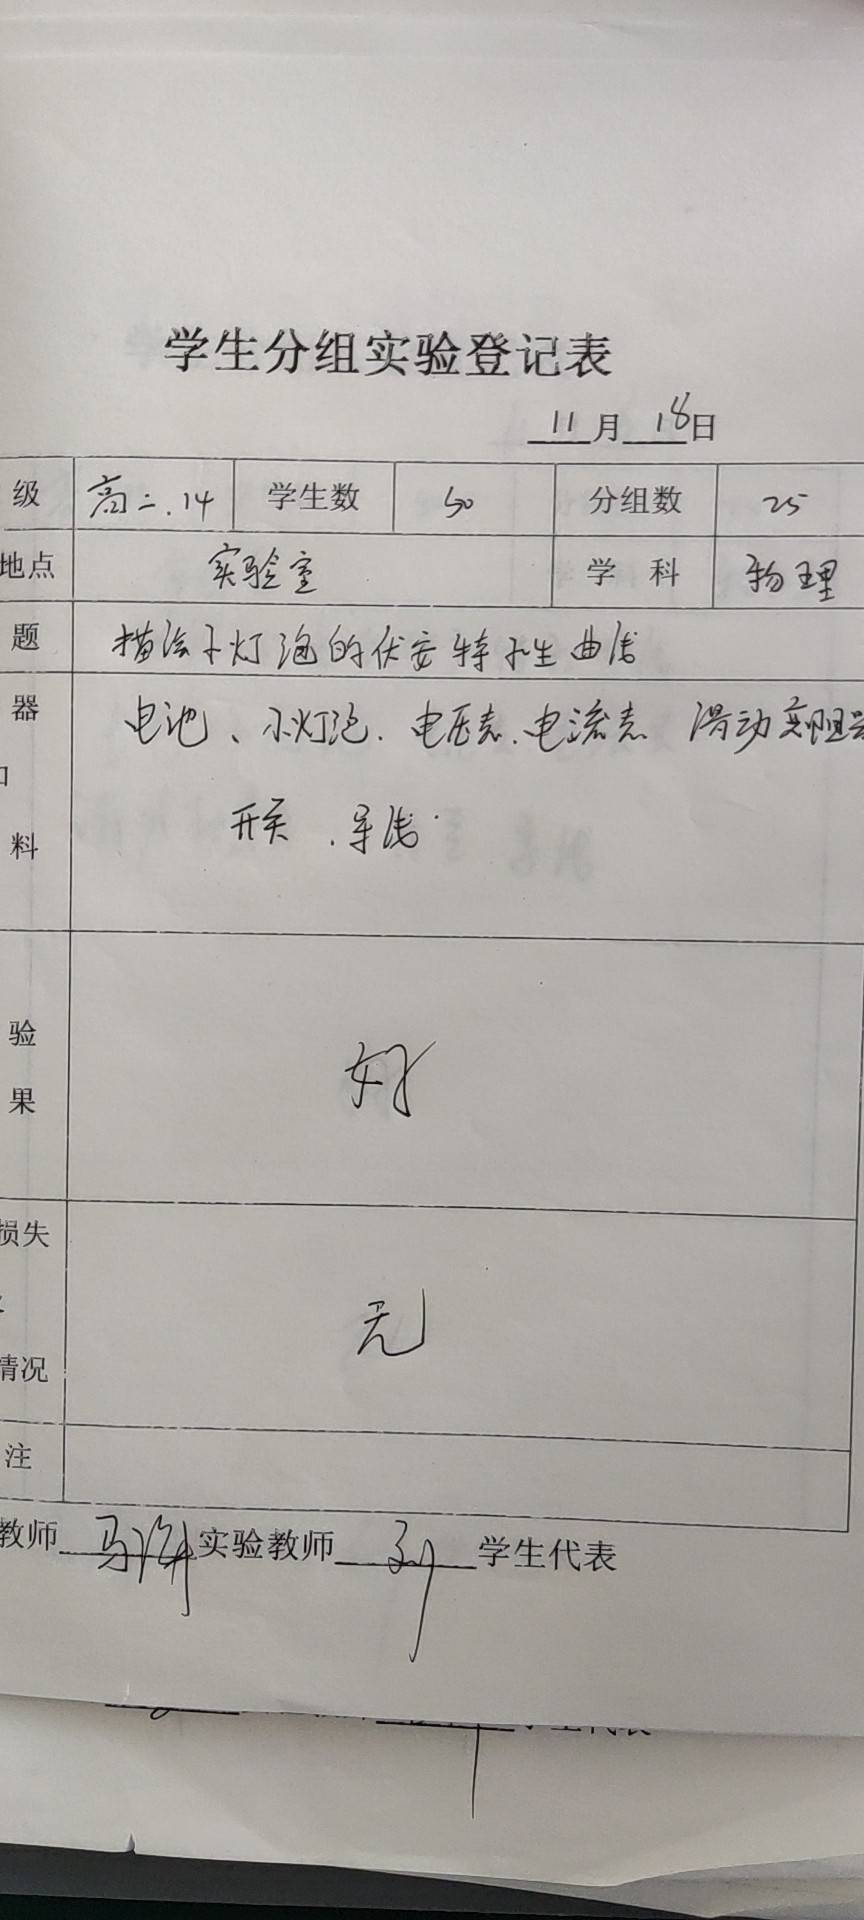 学生分组实验登记表
11月18日
级 高二.14 学生数 50 分组数 25
地点 实验室 学 科 物理
题 描绘小灯泡的伏安特性曲线
器 电池、小灯泡.电压表.电流表 滑动变阻器
料 开关.导线.
验
果 好
损失
无
情况
注
教师 实验教师 刘 学生代表